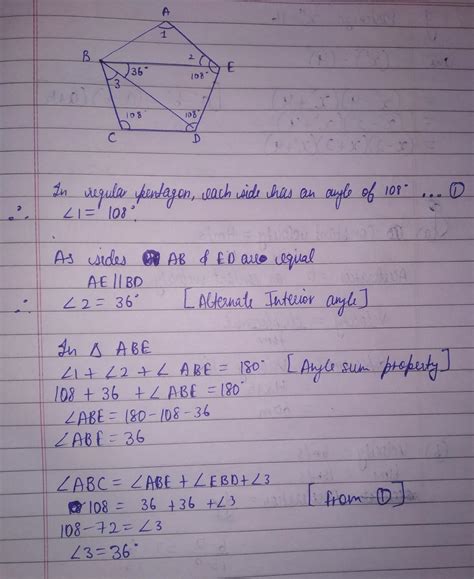 A
1
B
2
E
36°
108°
3
108
108°
C
D
In regular pentagon, each side has an angle of 108° ... ①
∴ ∠1 = 108°
As sides AB & ED are equal
AE || BD
∴ ∠2 = 36° [Alternate Interior angle]
In △ ABE
∠1 + ∠2 + ∠ ABE = 180° [Angle sum property]
108 + 36 + ∠ABE = 180°
∠ABE = 180 - 108 - 36
∠ABE = 36
∠ABC = ∠ABE + ∠EBD + ∠3
108 = 36 + 36 + ∠3 [from ①]
108 - 72 = ∠3
∠3 = 36°